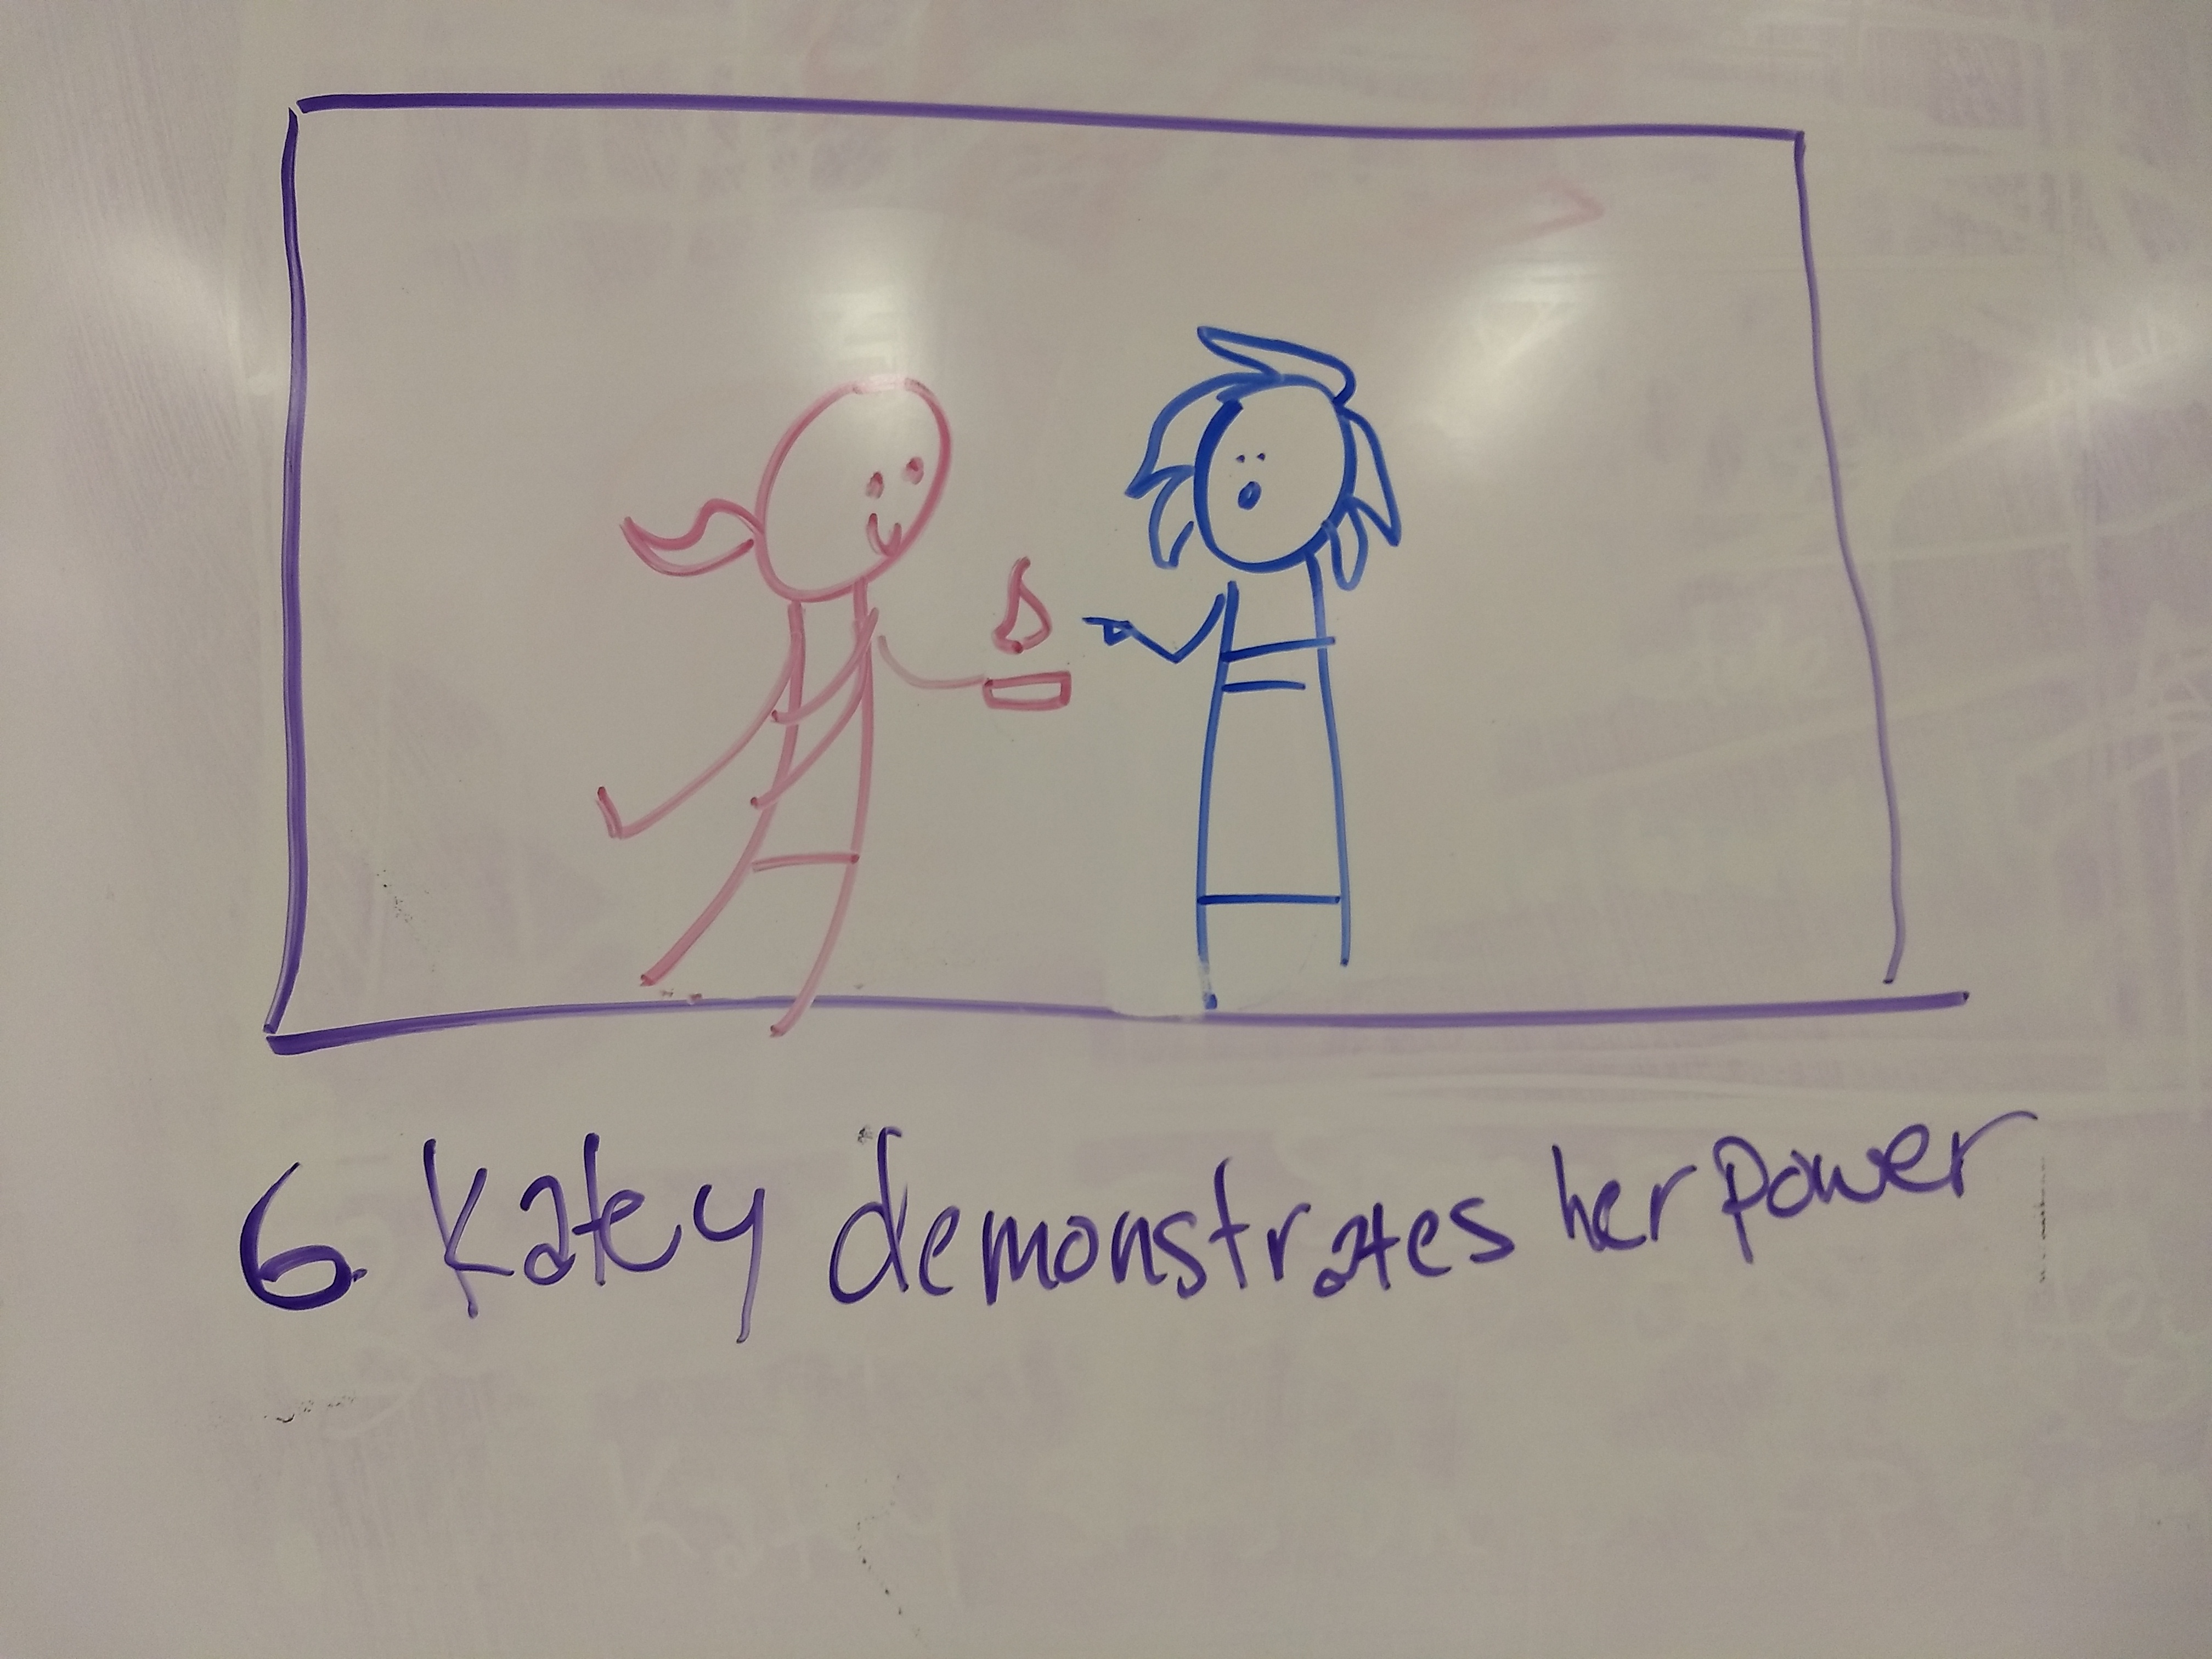 6. Katey demonstrates her power